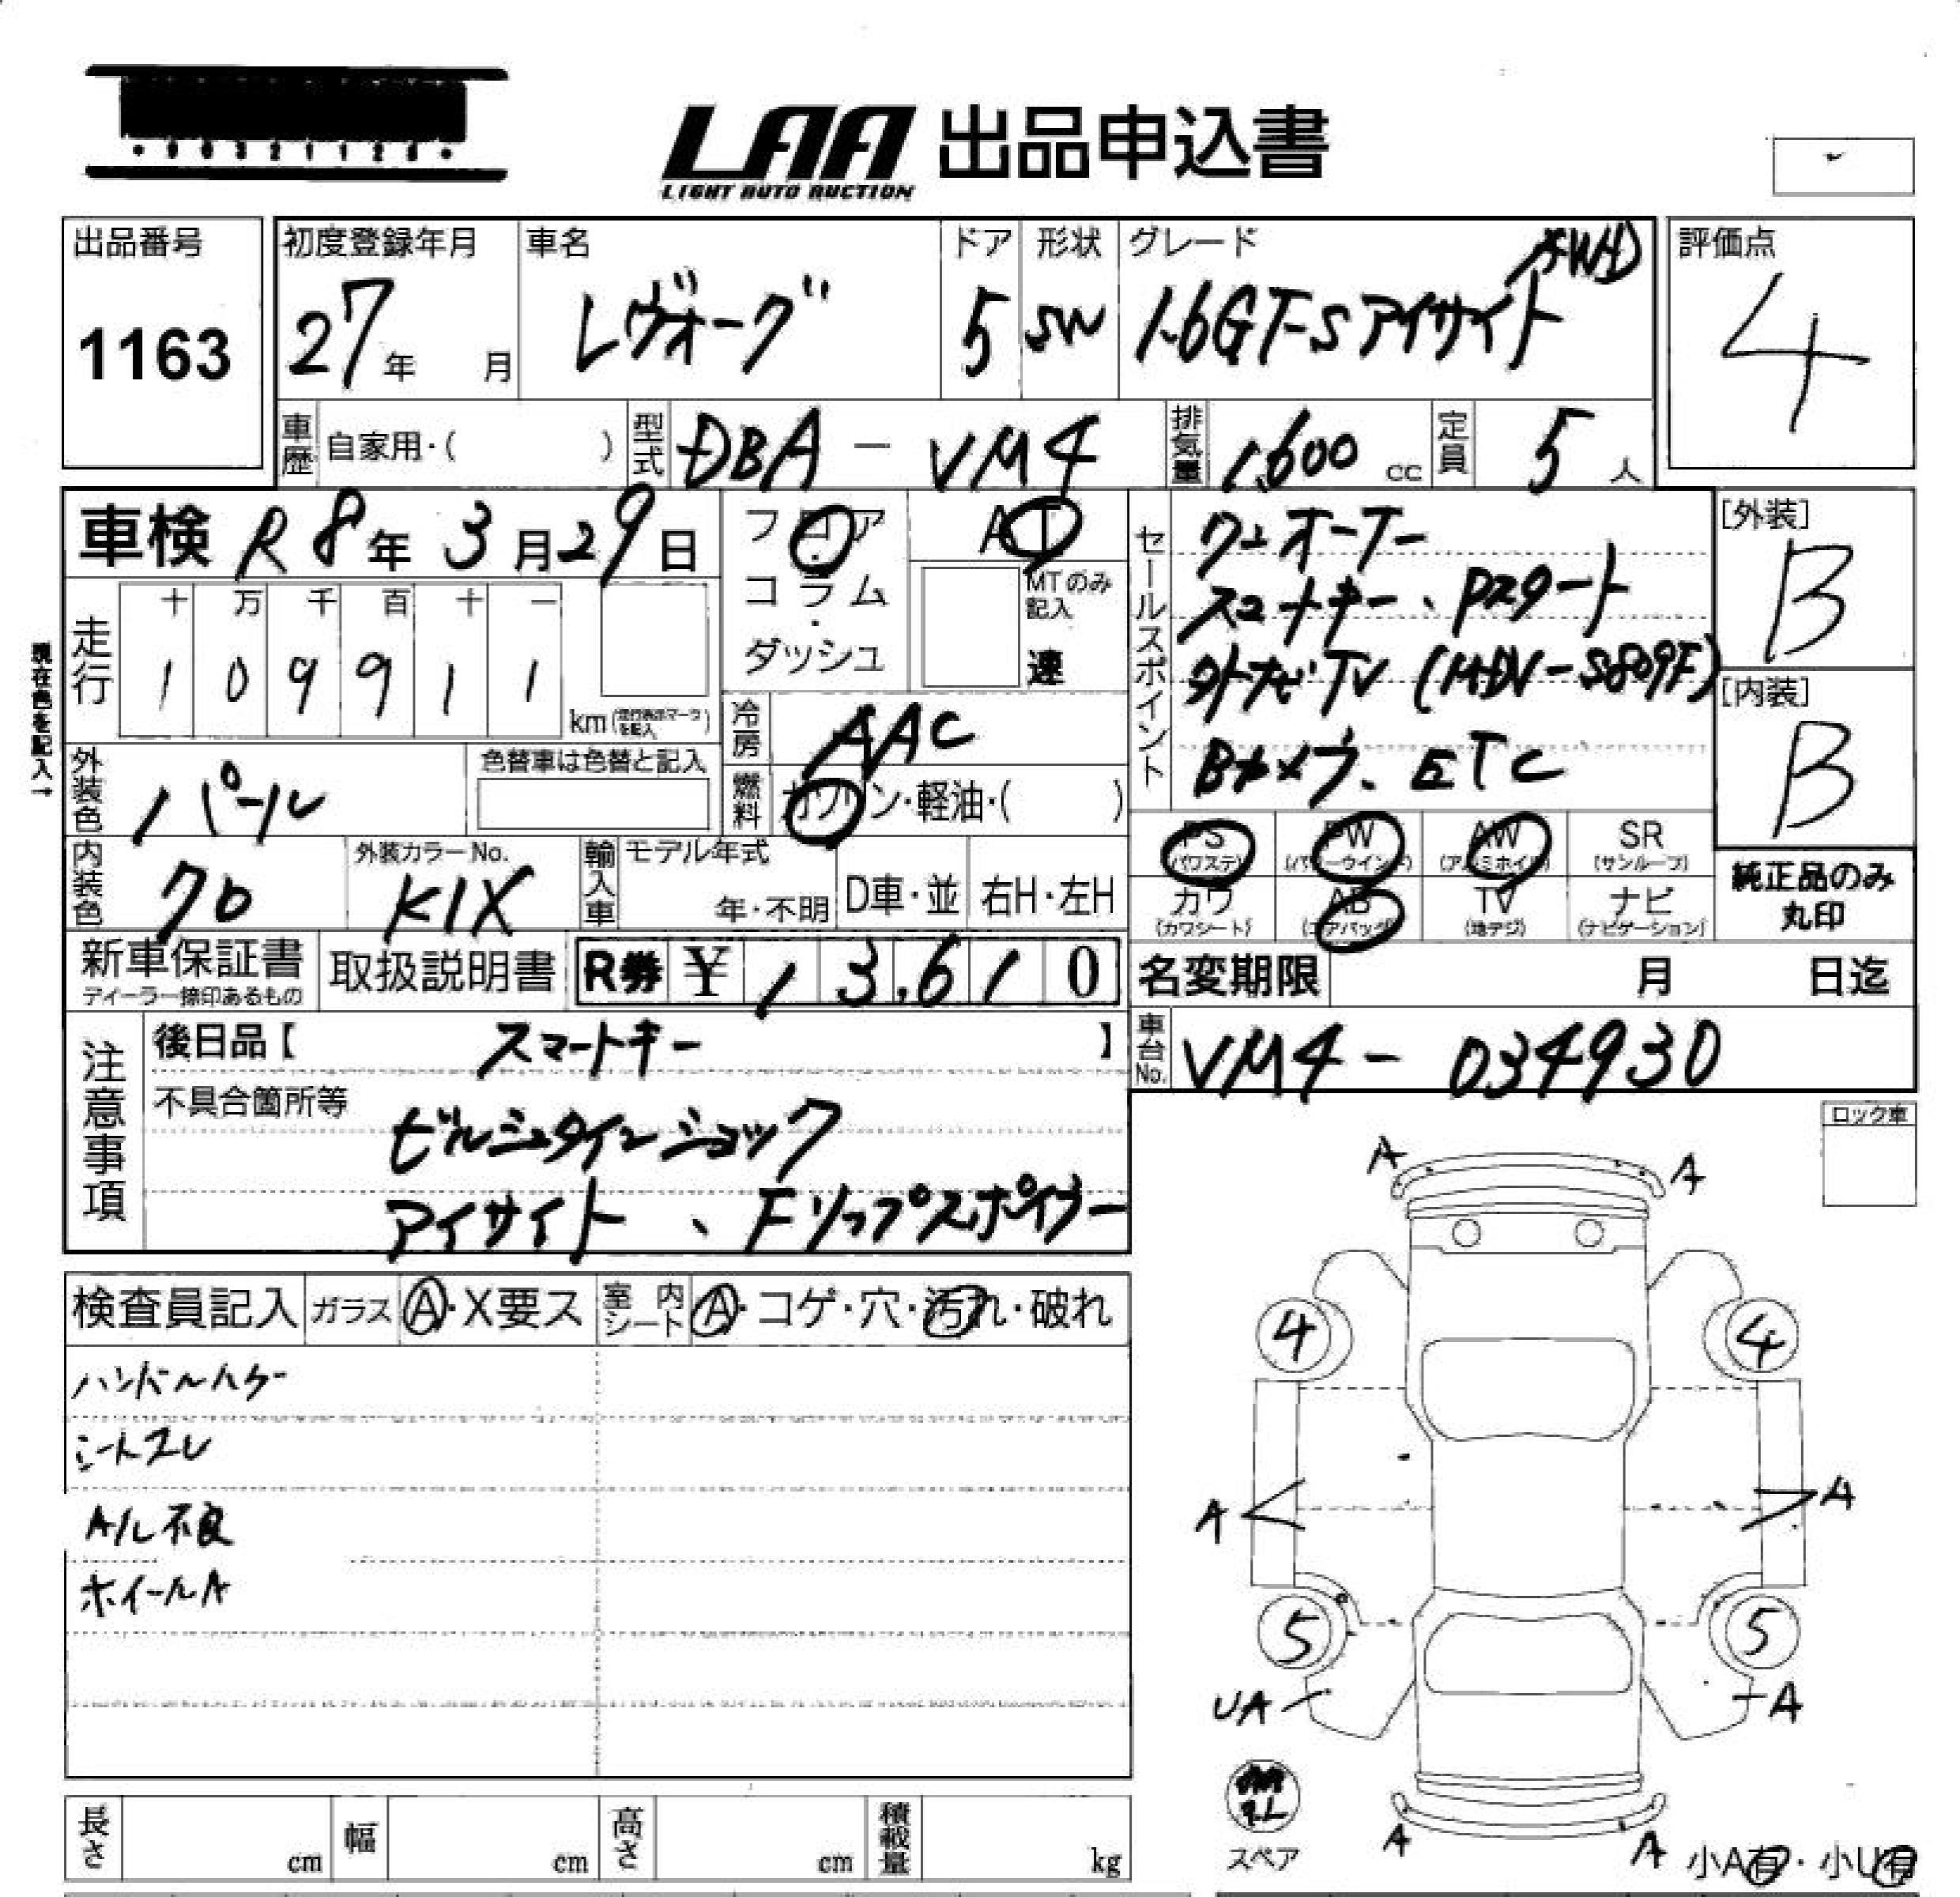 LAA 出品申込書
LIGHT AUTO AUCTION
出品番号
1163
初度登録年月
27年 月
車名
レヴォーグ
ドア
5
形状
SW
グレード
AWD
1.6GT-Sアイサイト
評価点
4
車歴 自家用・( )
型式 DBA - VM4
排気量 1,600 cc
定員 5 人
車検 R8年3月29日
フロア・コラム・ダッシュ
AT
MTのみ記入
速
セールスポイント
ワンオーナー
スマートキー、Pスタート
外ナビTV (MDV-S809F)
Bカメラ、ETC
[外装]
B
[内装]
B
現在色を記入→
走行
十 万 千 百 十 一
1 0 9 9 1 1
km (走行表示マークを記入)
冷房 AAC
燃料 ガソリン・軽油・( )
外装色 パール
色替車は色替と記入
内装色 クロ
外装カラーNo.
K1X
輸入車
モデル年式
年・不明
D車・並
右H・左H
PS (パワステ)
PW (パワーウインド)
AW (アルミホイル)
SR (サンルーフ)
カワ (カワシート)
AB (エアバック)
TV (地デジ)
ナビ (ナビゲーション)
純正品のみ丸印
新車保証書
ディーラー捺印あるもの
取扱説明書
R券 ¥ 13,610
名変期限 月 日迄
車台No. VM4 - 034930
注意事項
後日品【 スマートキー 】
不具合箇所等
ビルシュタインショック
アイサイト、Fリップスポイラー
ロック車
検査員記入
ガラス A・X要ス
室内シート A・コゲ・穴・汚れ・破れ
ハンドルハゲ
シートスレ
A/L不良
ホイールA
A A
4 4
A A
5 5
UA A
スペア
A A
小A有・小U有
長さ cm
幅 cm
高さ cm
積載量 kg